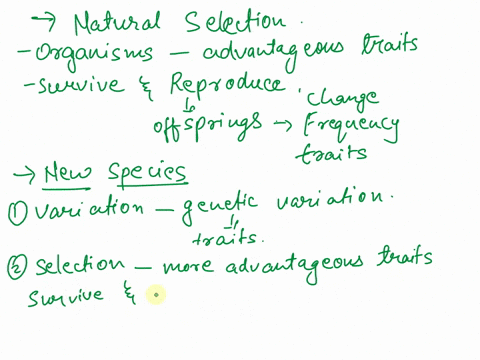 → Natural Selection.
- Organisms — advantageous traits
- Survive & Reproduce.
↳ offsprings → change Frequency traits
→ New Species
① Variation — genetic variation.
↳ traits.
② Selection — more advantageous traits
Survive &